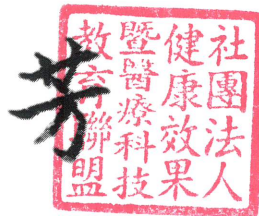 社團法人
健康效果
暨醫療科技
教育聯盟
芳